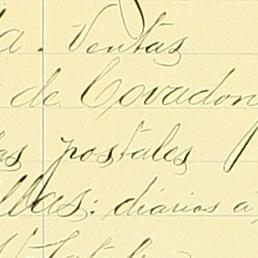 a. Ventas
de Covadon
as postales
llas: diarios a